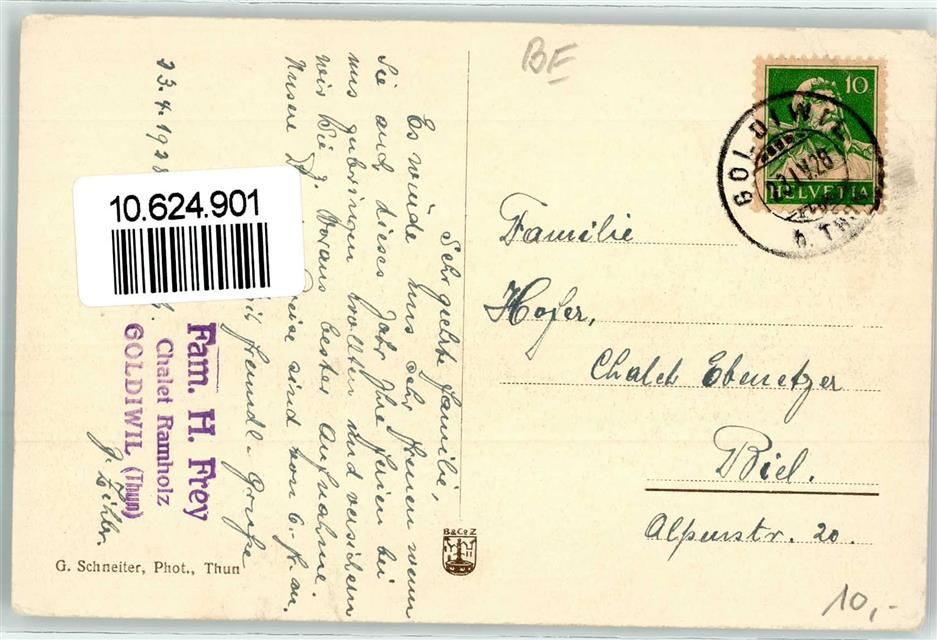 Sehr geehrte Familie,
Es würde uns sehr freuen wenn
Sie auch dieses Jahr Ihre Ferien bei
uns zubringen wollten und versichern
wir Sie z. Voraus bester Aufnahme.
Unsere Preise sind von 6.- Fr. an.
Mit freundl. Grüße
Fam. H. Frey
Chalet Ramholz
GOLDIWIL (Thun)
23.4.1928
BE
10
HELVETIA
GOLDIWIL
Familie
Hofer,
Chalet Ebenetzer
Biel.
Alpenstr. 20.
10.624.901
B&Co Z
G. Schneiter, Phot., Thun
10,-